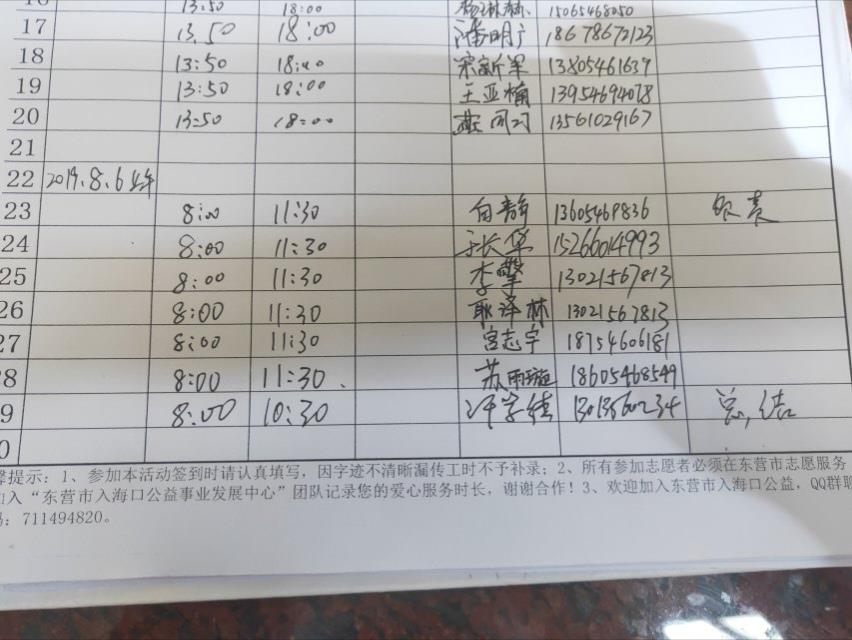 13:50 18:00 15065468050
17 13.50 18:00 潘明广 18678672123
18 13:50 18:00 宋新军 13805461639
19 13:50 18:00 王亚楠 13954694078
20 13:50 18:00 13561029167
21
22 2019.8.6上午
23 8:00 11:30 白静 13605469836 负责
24 8:00 11:30 于长华 15266014993
25 8:00 11:30 李擎 13021567813
26 8:00 11:30 耿泽林 13021567813
27 8:00 11:30 宫志宇 18754606181
8 8:00 11:30 苏雨璇 18605468549
9 8:00 10:30 总结
0
提示:1、参加本活动签到时请认真填写,因字迹不清晰漏传工时不予补录;2、所有参加志愿者必须在东营市志愿服务
加入“东营市入海口公益事业发展中心”团队记录您的爱心服务时长,谢谢合作!3、欢迎加入东营市入海口公益,QQ群联
:711494820。